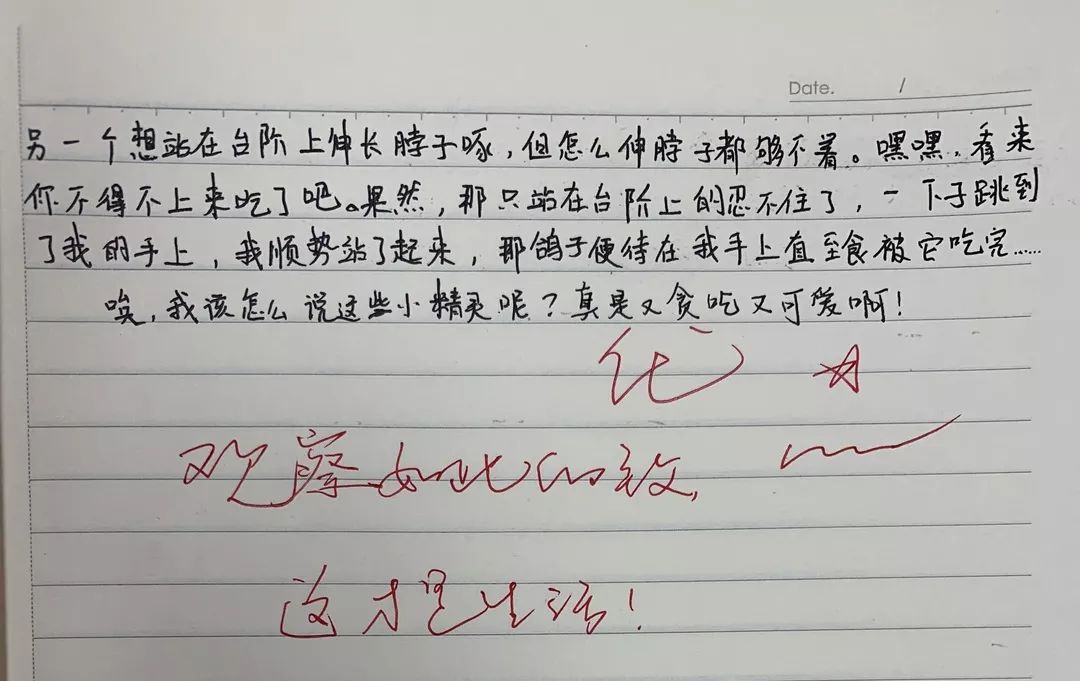 Date. /
另一个想站在台阶上伸长脖子啄，但怎么伸脖子都够不着。嘿嘿，看来
你不得不上来吃了吧。果然，那只站在台阶上的忍不住了，一下子跳到
了我的手上，我顺势站了起来，那鸽子便待在我手上直至食被它吃完……
唉，我该怎么说这些小精灵呢？真是又贪吃又可爱啊！
优 ☆
观察如此细致，
这才是生活！